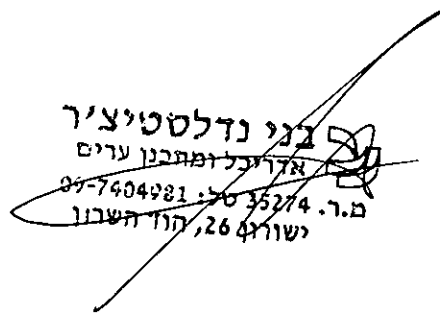 בני נדלסטיצ'ר
אדריכל ומתכנן ערים
מ.ר. 35274 טל: 09-7404981
ישורון 26, הוד השרון